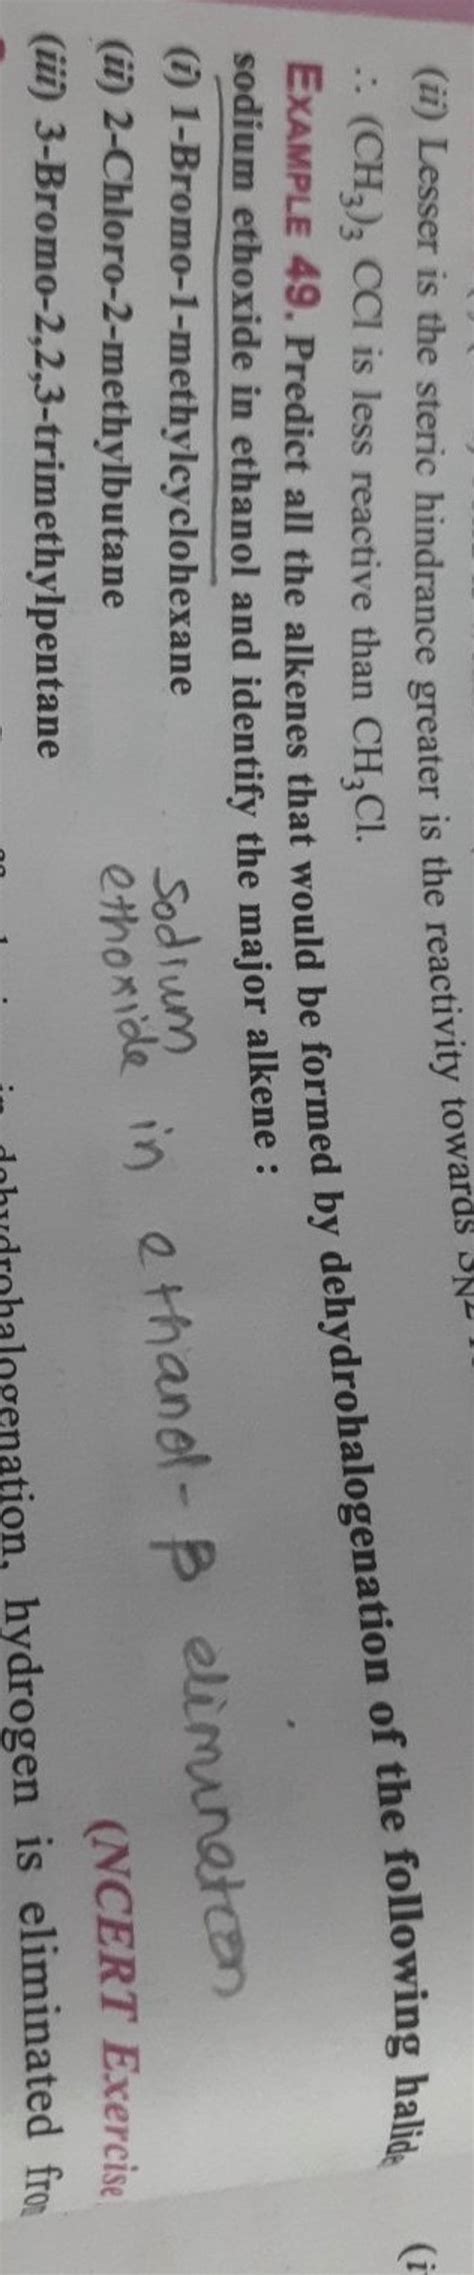 (ii) Lesser is the steric hindrance greater is the reactivity towards SN2
∴ (CH₃)₃ CCl is less reactive than CH₃Cl.
EXAMPLE 49. Predict all the alkenes that would be formed by dehydrohalogenation of the following halide
sodium ethoxide in ethanol and identify the major alkene :
(i) 1-Bromo-1-methylcyclohexane
(ii) 2-Chloro-2-methylbutane
(iii) 3-Bromo-2,2,3-trimethylpentane
sodium
ethoxide in ethanol - β elimination
(NCERT Exercise
dehydrohalogenation, hydrogen is eliminated from